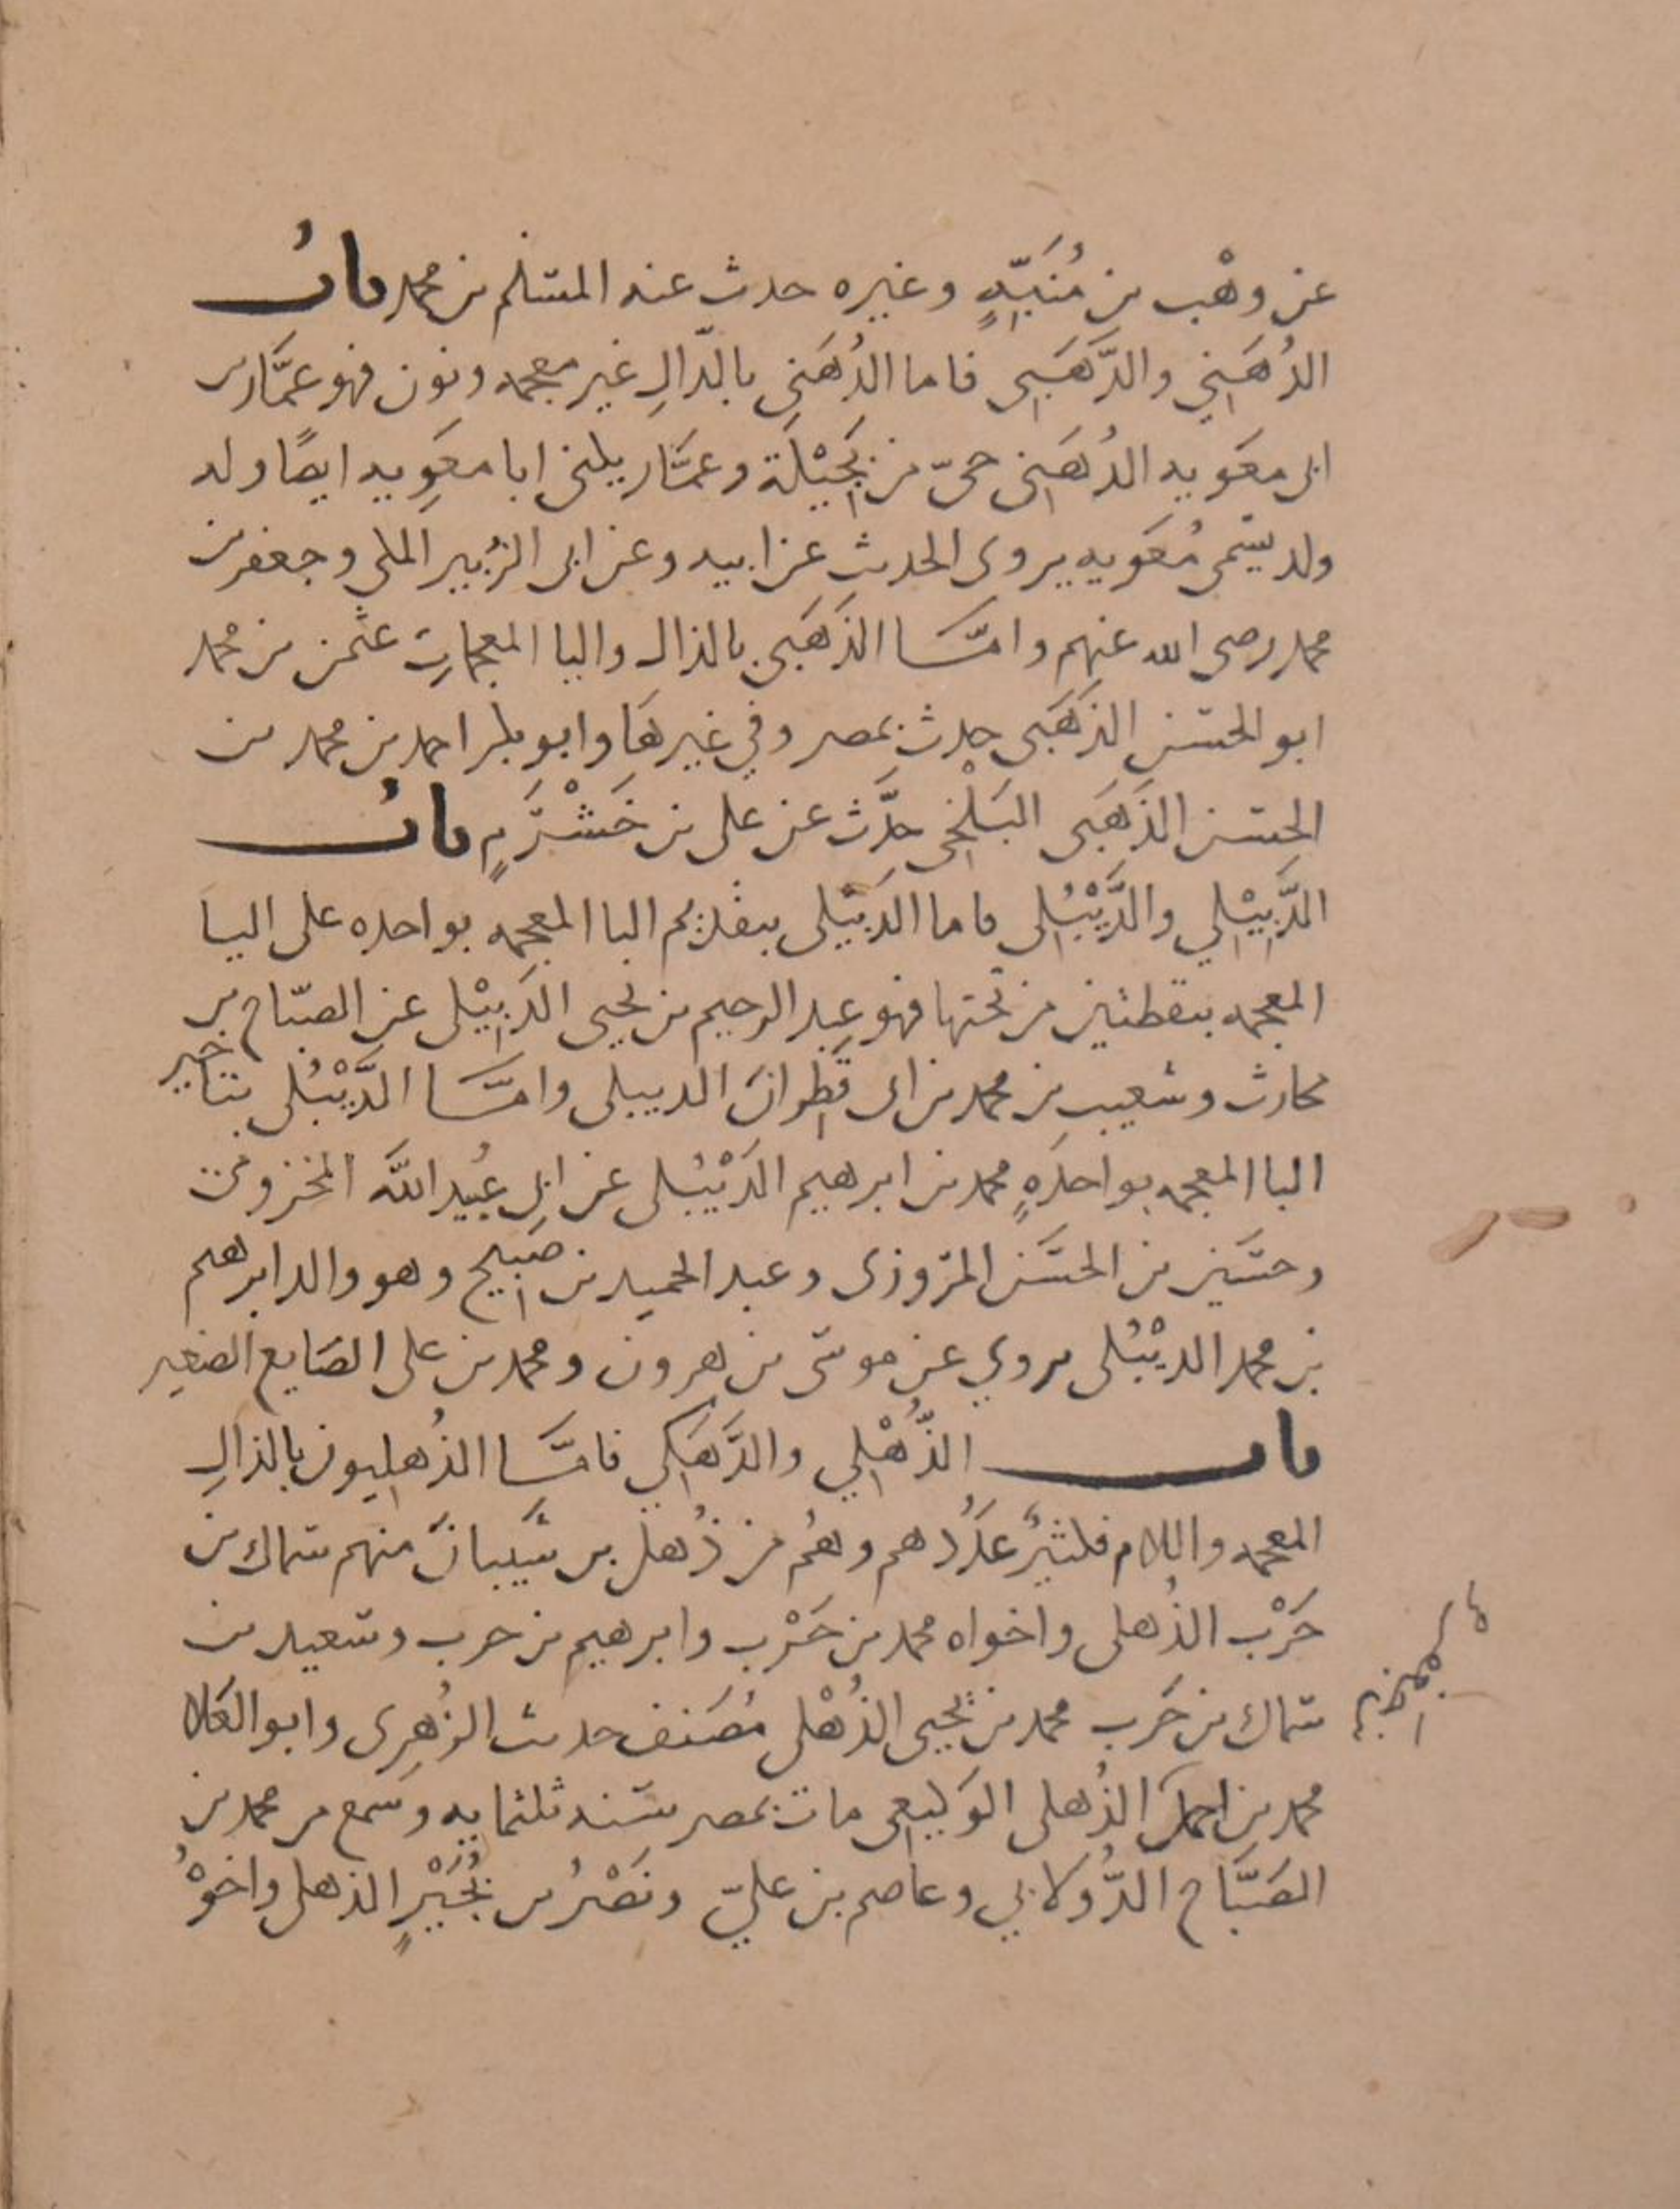 عن وهْب بن مُنَبِّهٍ وغيره حدث عنه المسلم بن محمد بابُ
الدُهَنِي والذَّهَبِي فاما الدُهَنِي بالدّالِ غير معجمه ونون فهو عمَّار بن
ابى معَويه الدُهَنِى حىّ من بَجِيْلَة وعمَّار يكنى ابا معَوِيه ايضًا وله
ولد يسَمى مُعَويه يروى الحديث عن ابيه وعن ابى الزُبير المكى وجعفر بن
محمد رضى الله عنهم وامَّا الذَهَبى بالذال والبا المعجماتِ عثمن بن محمد
ابو الحسَن الذَهَبى حدث بمصر وفي غيرهَا وابو بكر احمد بن محمد بن
الحسن الذَهَبى البَلْخى حدَّث عن على بن خَشْرَمٍ بابُ
الدَّبِيْلِي والدَّيْبُلِى فاما الدَبِيْلى بتقديم البا المعجمه بواحده على اليا
المعجمه بنقطتين من تحتها فهو عبد الرحيم بن يحيى الدَبِيْلى عن الصبّاح بن
محارب وشعيب بن محمد بن ابى قَطِران الدبيلى وامَّا الدَّيْبُلى بتاخير
البا المعجمه بواحدَهٍ محمد بن ابرهيم الدَيْبُلى عن ابى عُبيد اللَّه المخزومى
وحسَين بن الحسَن المرَوزى وعبد الحميد بن صَبيح وهو والد ابرهيم
بن محمد الديْبُلى يروي عن موسَى بن هرون ومحمد بن على الصَايغ الصَغِير
باب الذُّهْلِي والدَّهَكِي فامَّا الذُهليون بالذالِ
المعجمه واللام فكثيرٌ عدَدُهم وهُم من ذُهل بن شَيبانَ منهم سماك بن
حَرْب الذُهلى واخواه محمد بن حَرْب وابرهيم بن حرب وسَعيد بن
سماك بن حَرب محمد بن يحيى الذُهْلى مُصَنف حديث الزُهرِى وابو العَلا
محمد بن احمدَ الذُهلى الوَكيعى مات بمصر سَنه ثلثمايه وسَمع من محمد بن
الصَبَّاح الدُّولابي وعاصم بن عليّ ونَصْرُ بن بُجَيْرٍ الذهلى واخوْهُ